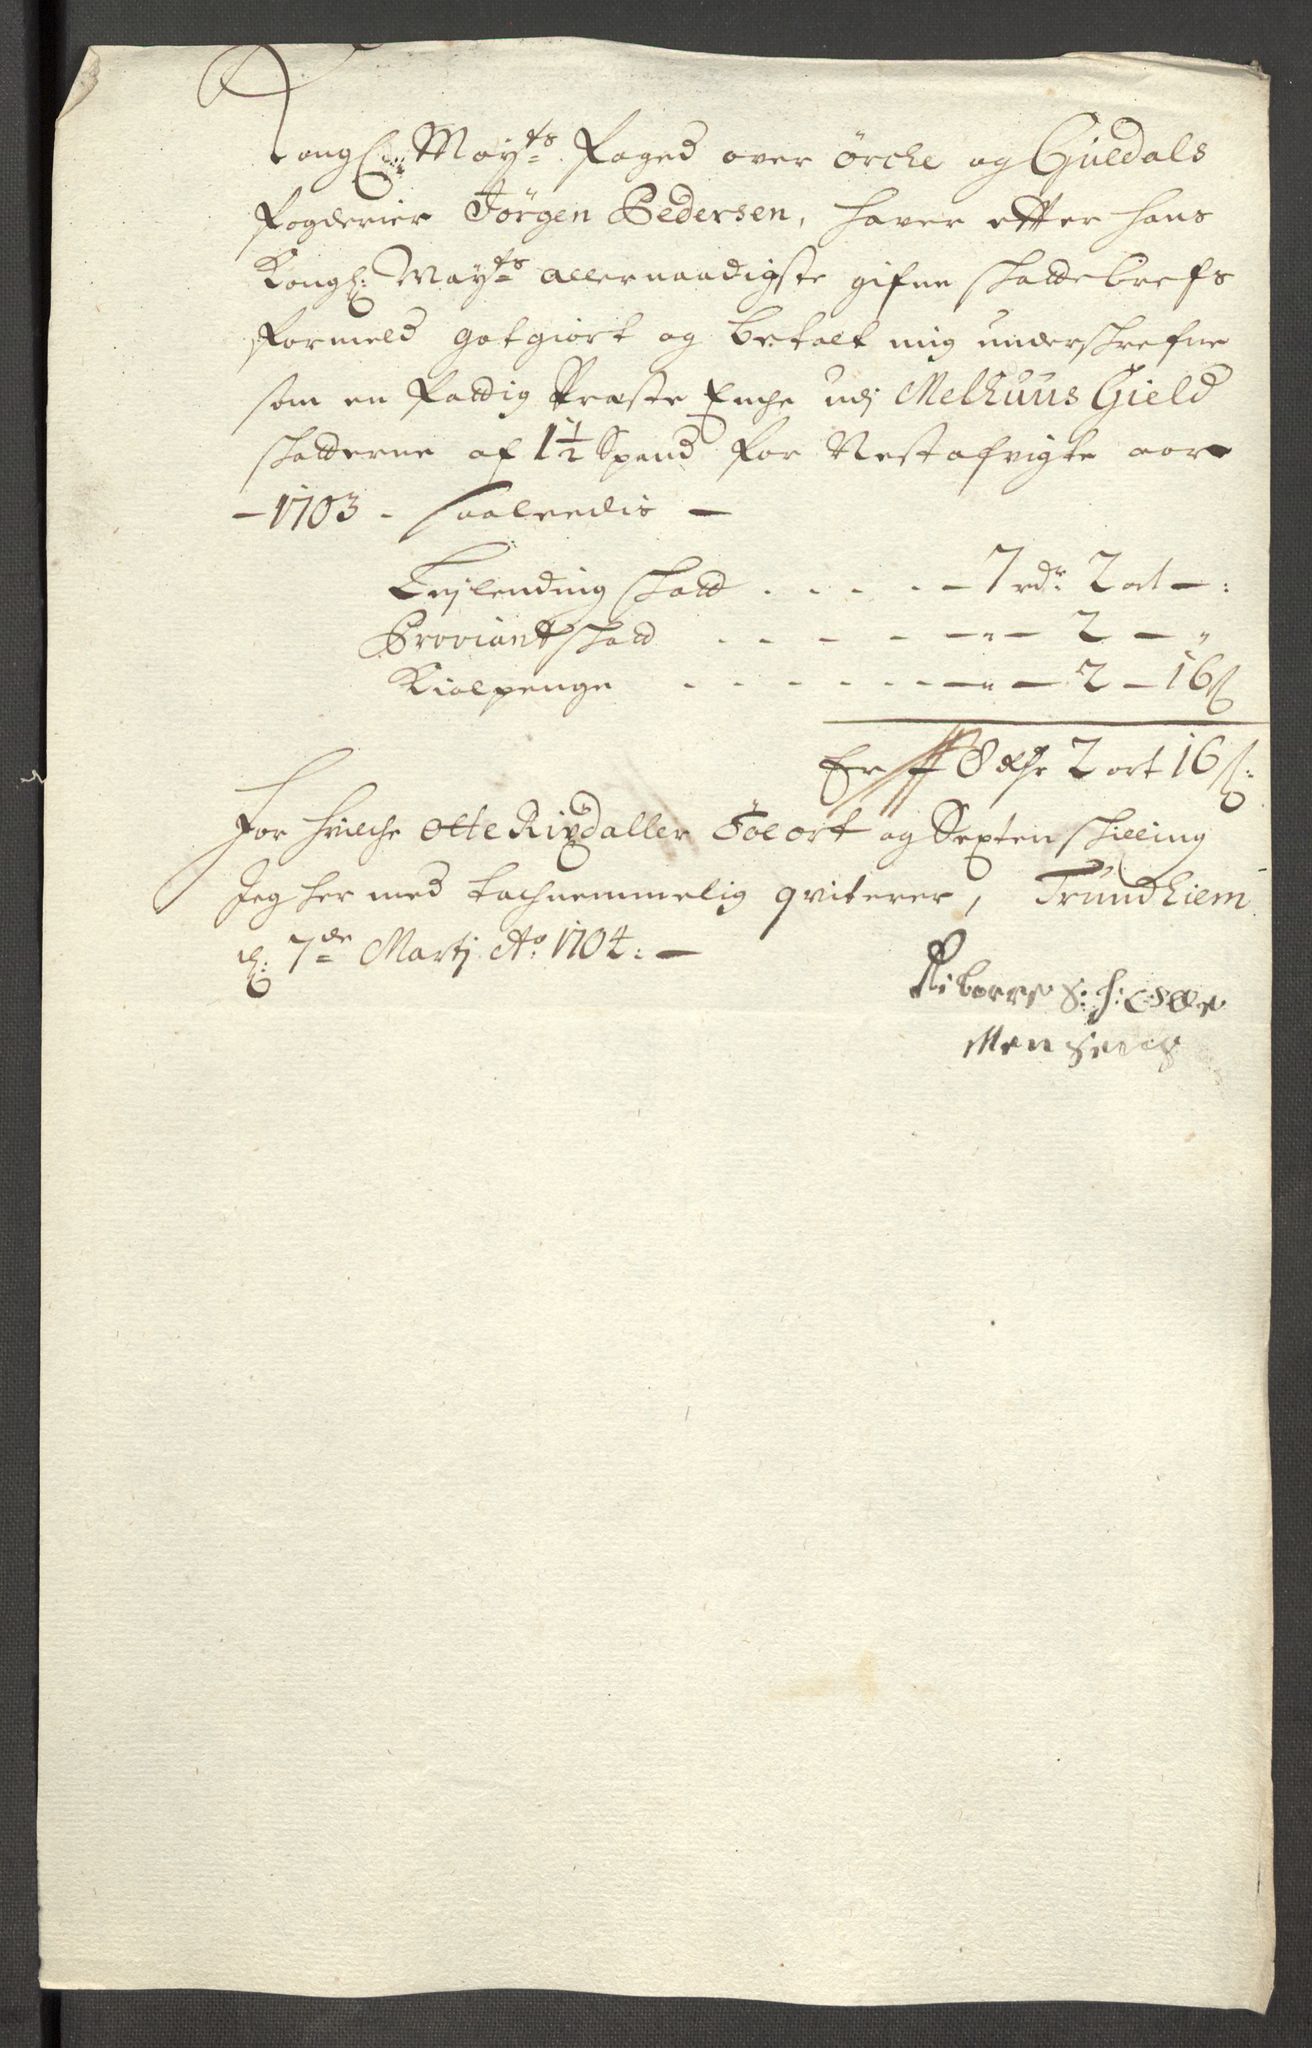 Kongl: Maÿts. Foged over Örche og Guldals
Fogderier Jörgen Pedersen, haver efter hans
Kongl: Maÿts allernaadigste gifne Skattebrefs
formeld gotgiort og betalt mig underschrefne
som en fattig Præste Enche udj Melhuus Gield
schatterne af 1½ Spand for Nestafvigte aar
– 1703 – saaledis –
Leylending schatt . . . . – 7 rdr 2 ort – :
Proviantschatt . . . . – „ – 2 – „
Kiolpenge . . . . . . – „ – 2 – 16 ß
Er 8 Rdr 2 ort 16 ß:
For hvilche Otte Rixdaller Tolort og Sexten schilling
Jeg her med tachnemmelig qviterer, Trundhiem
d: 7de Martj Ao: 1704: –
S: h: